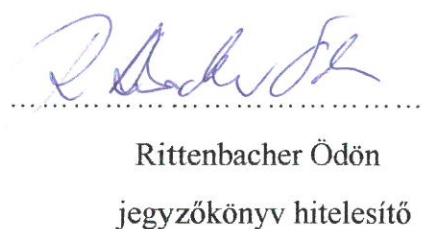 Rittenbacher Ödön
jegyzőkönyv hitelesítő